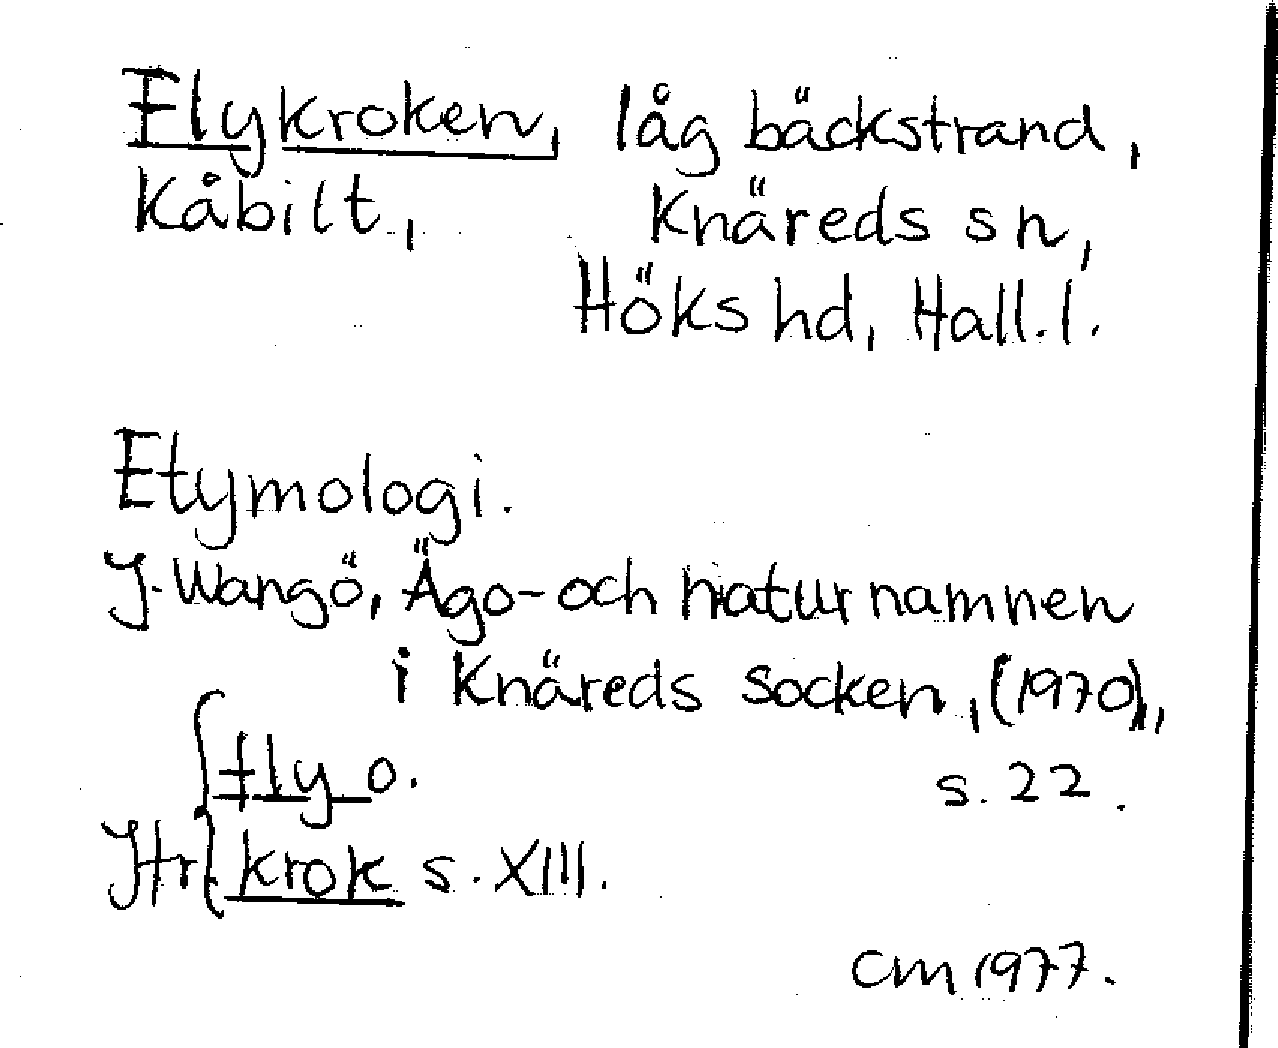 Flykroken, låg bäckstrand,
Kåbilt, Knäreds sn,
Höks hd, Hall.l.
Etymologi.
J. Wangö, Ägo- och naturnamnen
i Knäreds socken, (1970),
fly o. s. 22.
Jfr krok s. XIII.
CM 1977.